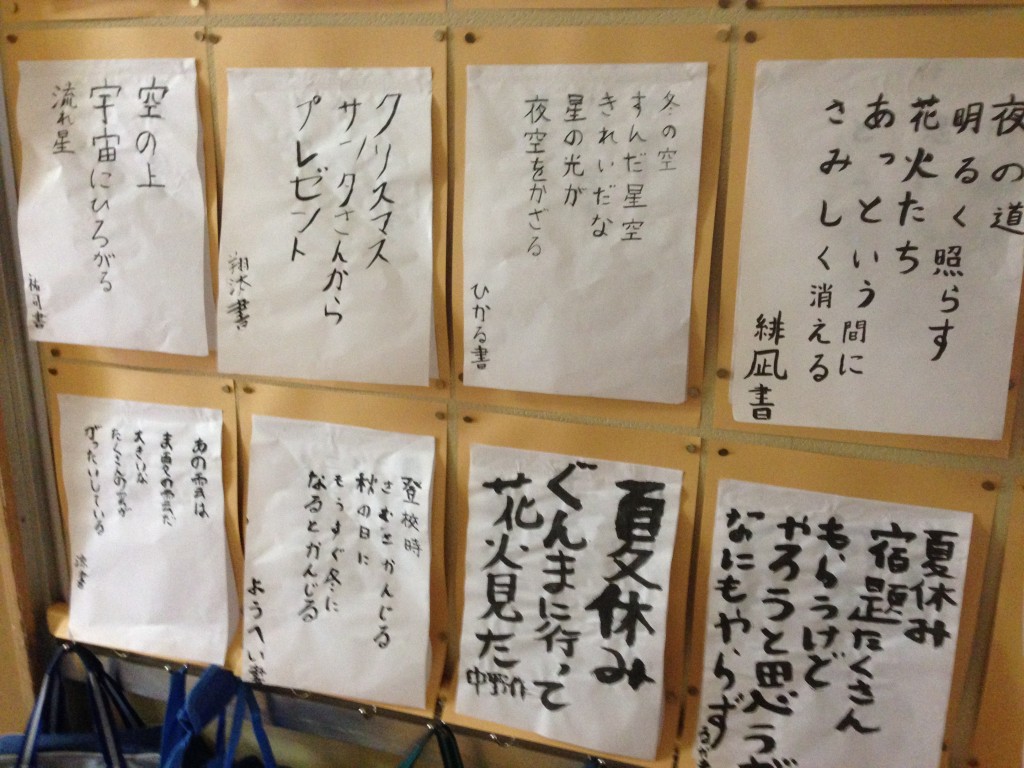 空の上
宇宙にひろがる
流れ星
祐司書
クリスマス
サンタさんから
プレゼント
書
冬の空
すんだ星空
きれいだな
星の光が
夜空をかざる
ひかる書
夜の道
明るく照らす
花火たち
あっという間に
さみしく消える
緋凪書
あの雲は
大きいな
たくさんの雲が
がったいしている
書
登校時
さむさかんじる
秋の日に
もうすぐ冬に
なるとかんじる
ようへい書
夏休み
ぐんまに行って
花火見た
中野作
夏休み
宿題たくさん
もらうけど
やろうと思うが
なにもやらず